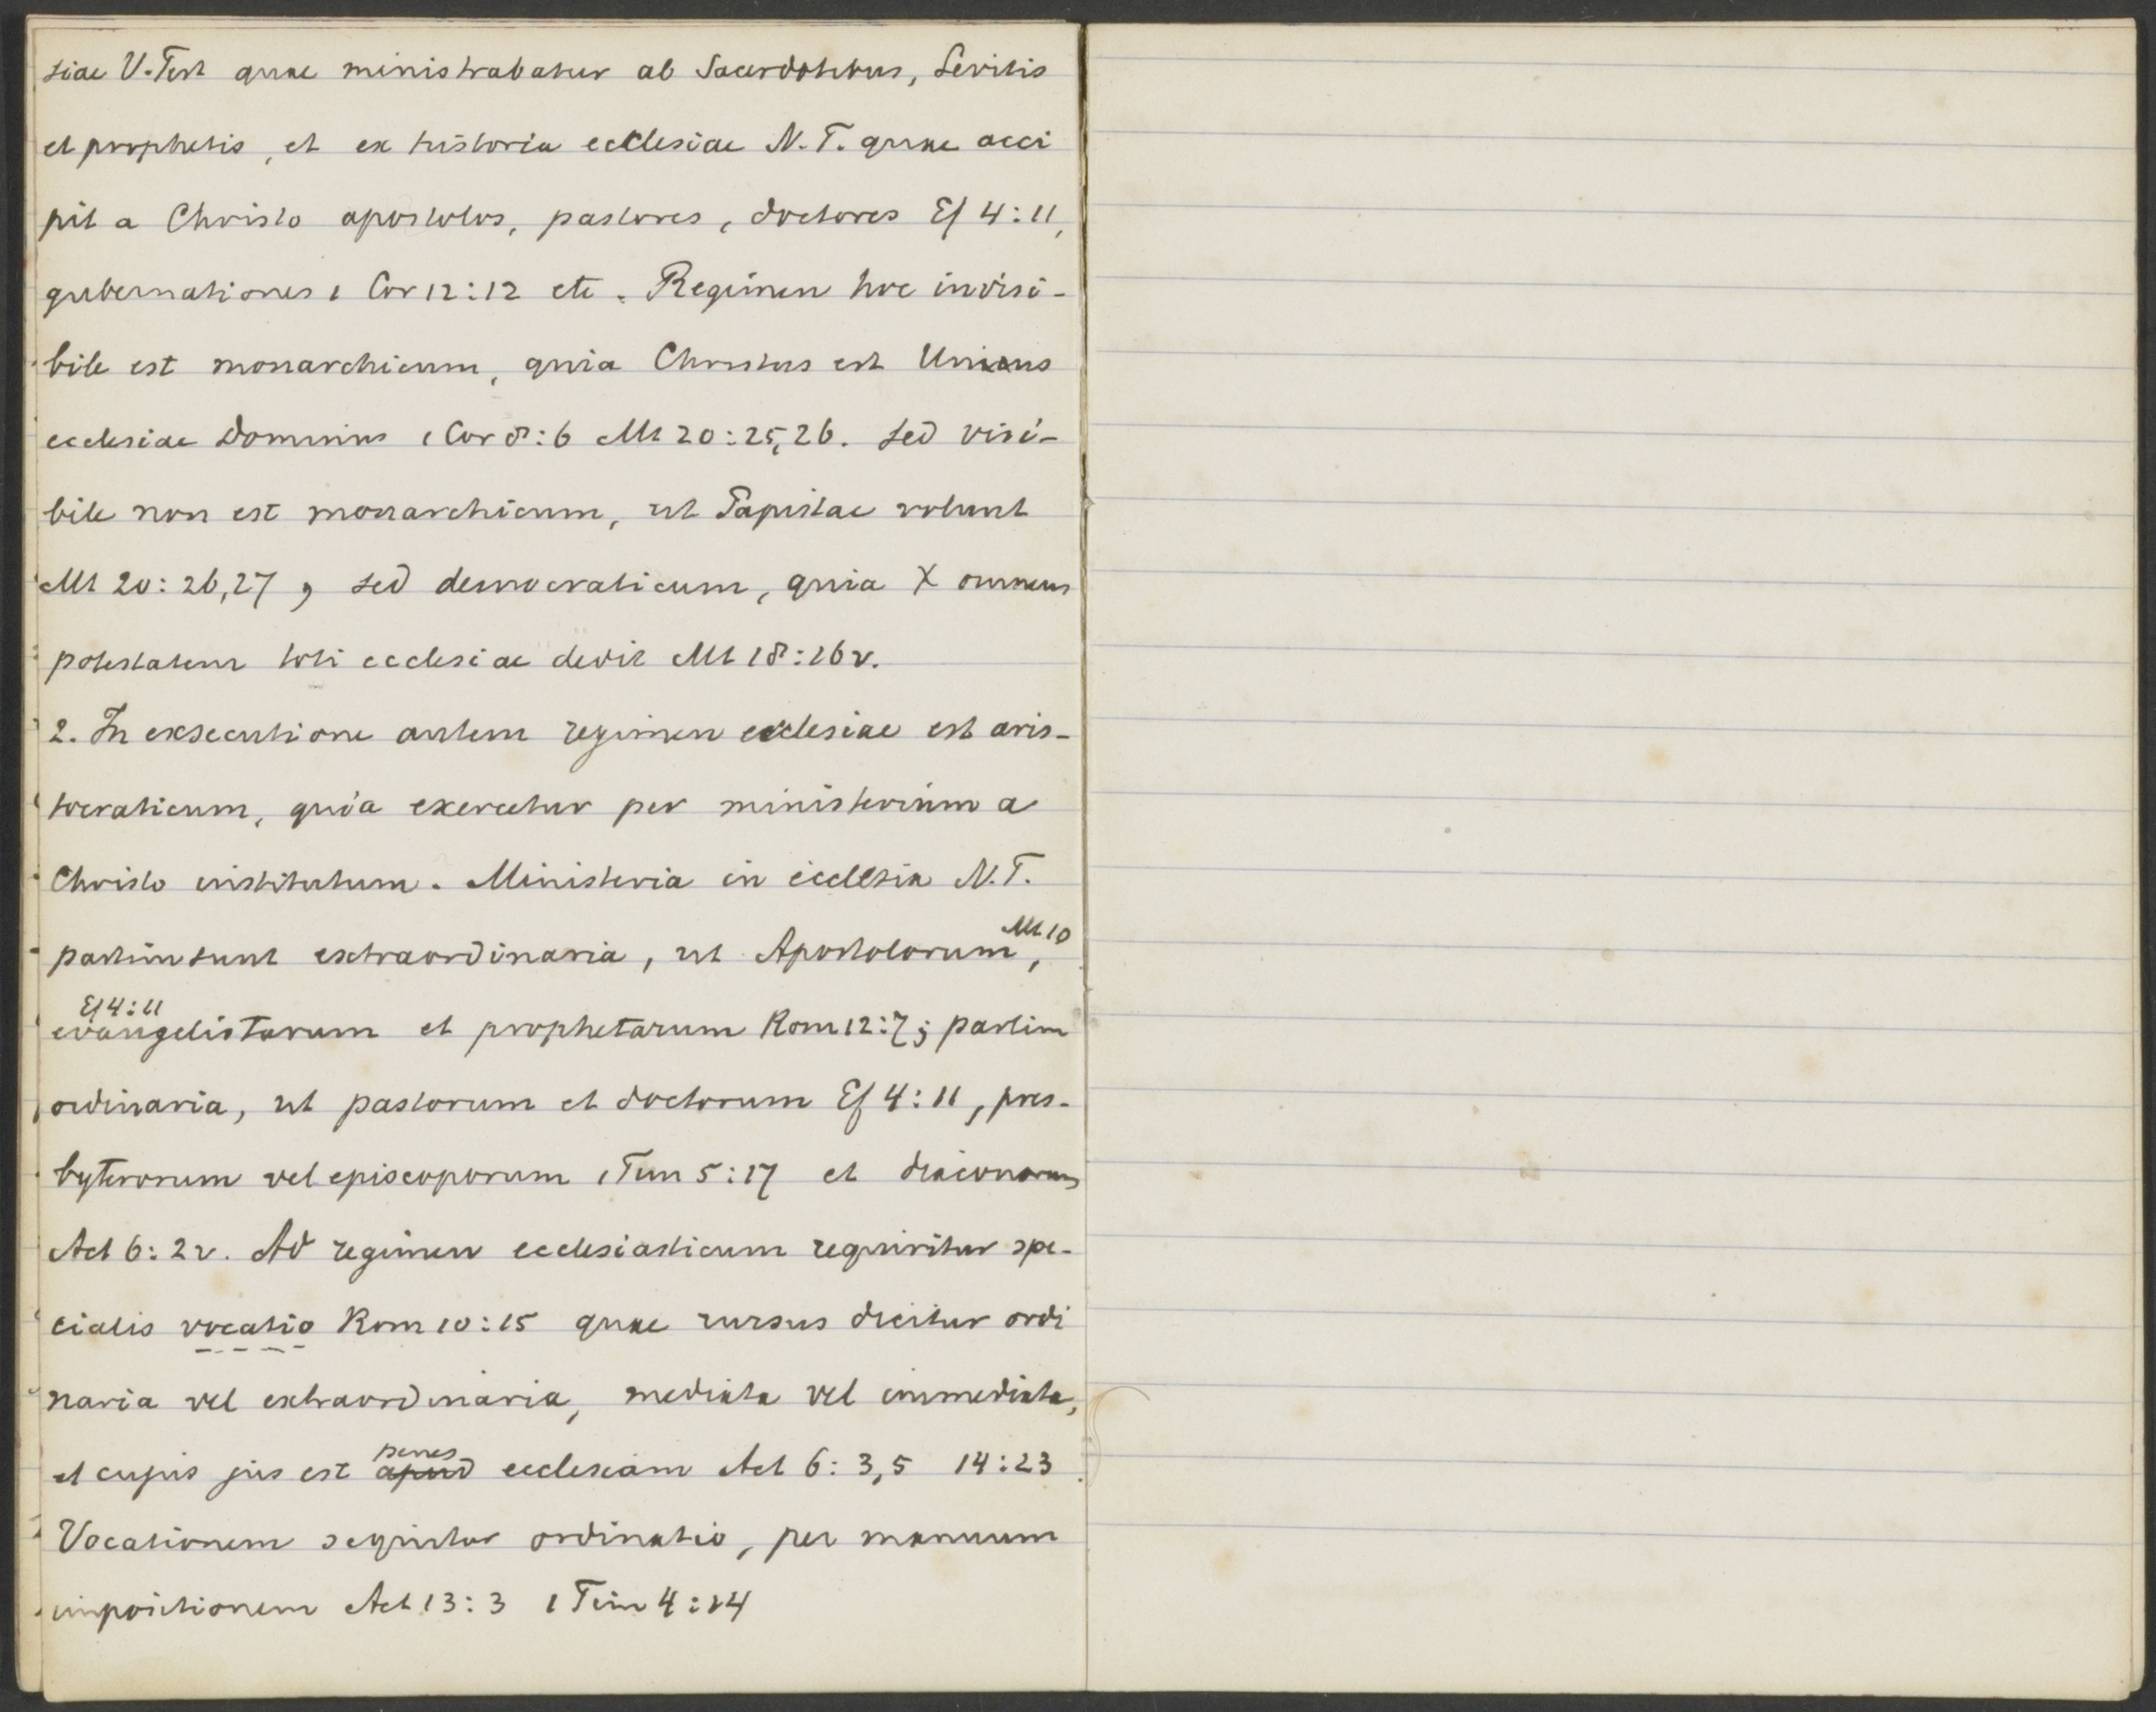 siae V. Test quae ministrabatur ab Sacerdotibus, Levitis
et prophetis, et ex historia ecclesiae N.T. quae acci
pit a Christo apostolos, pastores, doctores Ef 4:11,
gubernationes 1 Cor 12:12 etc. Regimen hoc invisi-
bile est monarchicum, quia Christus est Unicus
ecclesiae Dominus 1 Cor 8:6 Mt 20:25,26. sed visi-
bile non est monarchicum, ut Papistae volunt
Mt 20:26,27, sed democraticum, quia X omnem
potestatem toti ecclesiae dedit Mt 18:16v.
2. In exsecutione autem regimen ecclesiae est aris-
tocraticum, quia exercetur per ministerium a
Christo institutum. Ministeria in ecclesia N.T.
partim sunt extraordinaria, ut Apostolorum Mt 10,
evangelistarum Ef 4:11 et prophetarum Rom 12:7; partim
ordinaria, ut pastorum et doctorum Ef 4:11, pres-
byterorum vel episcoporum 1 Tim 5:17 et diaconorum
Act 6:2v. Ad regimen ecclesiasticum requiritur spe-
cialis vocatio Rom 10:15 quae rursus dicitur ordi
naria vel extraordinaria, mediata vel immediata,
et cujus jus est apud penes ecclesiam Act 6:3,5 14:23.
Vocationem sequitur ordinatio, per manuum
impositionem Act 13:3 1 Tim 4:14